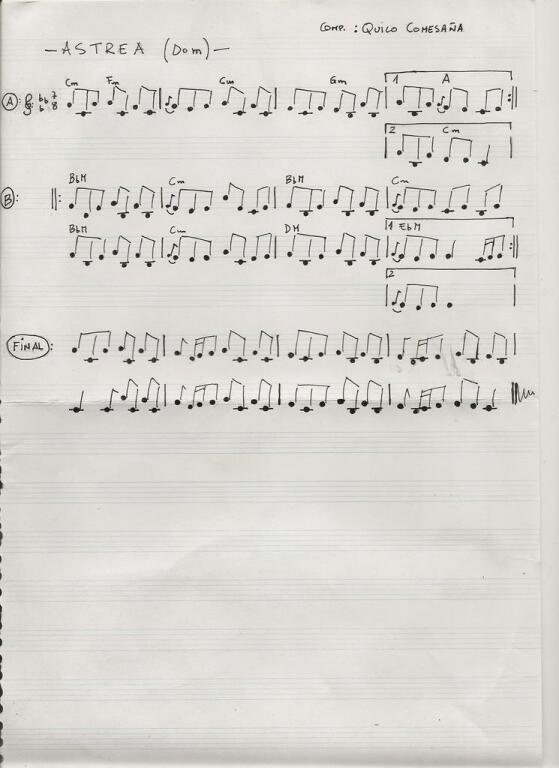 COMP. : QUICO COMESAÑA
- ASTREA (Dom) -
Cm Fm Cm Gm 1 A
A: 7
8
2 Cm
BbM Cm BbM Cm
B:
BbM Cm DM 1 EbM
2
FINAL: